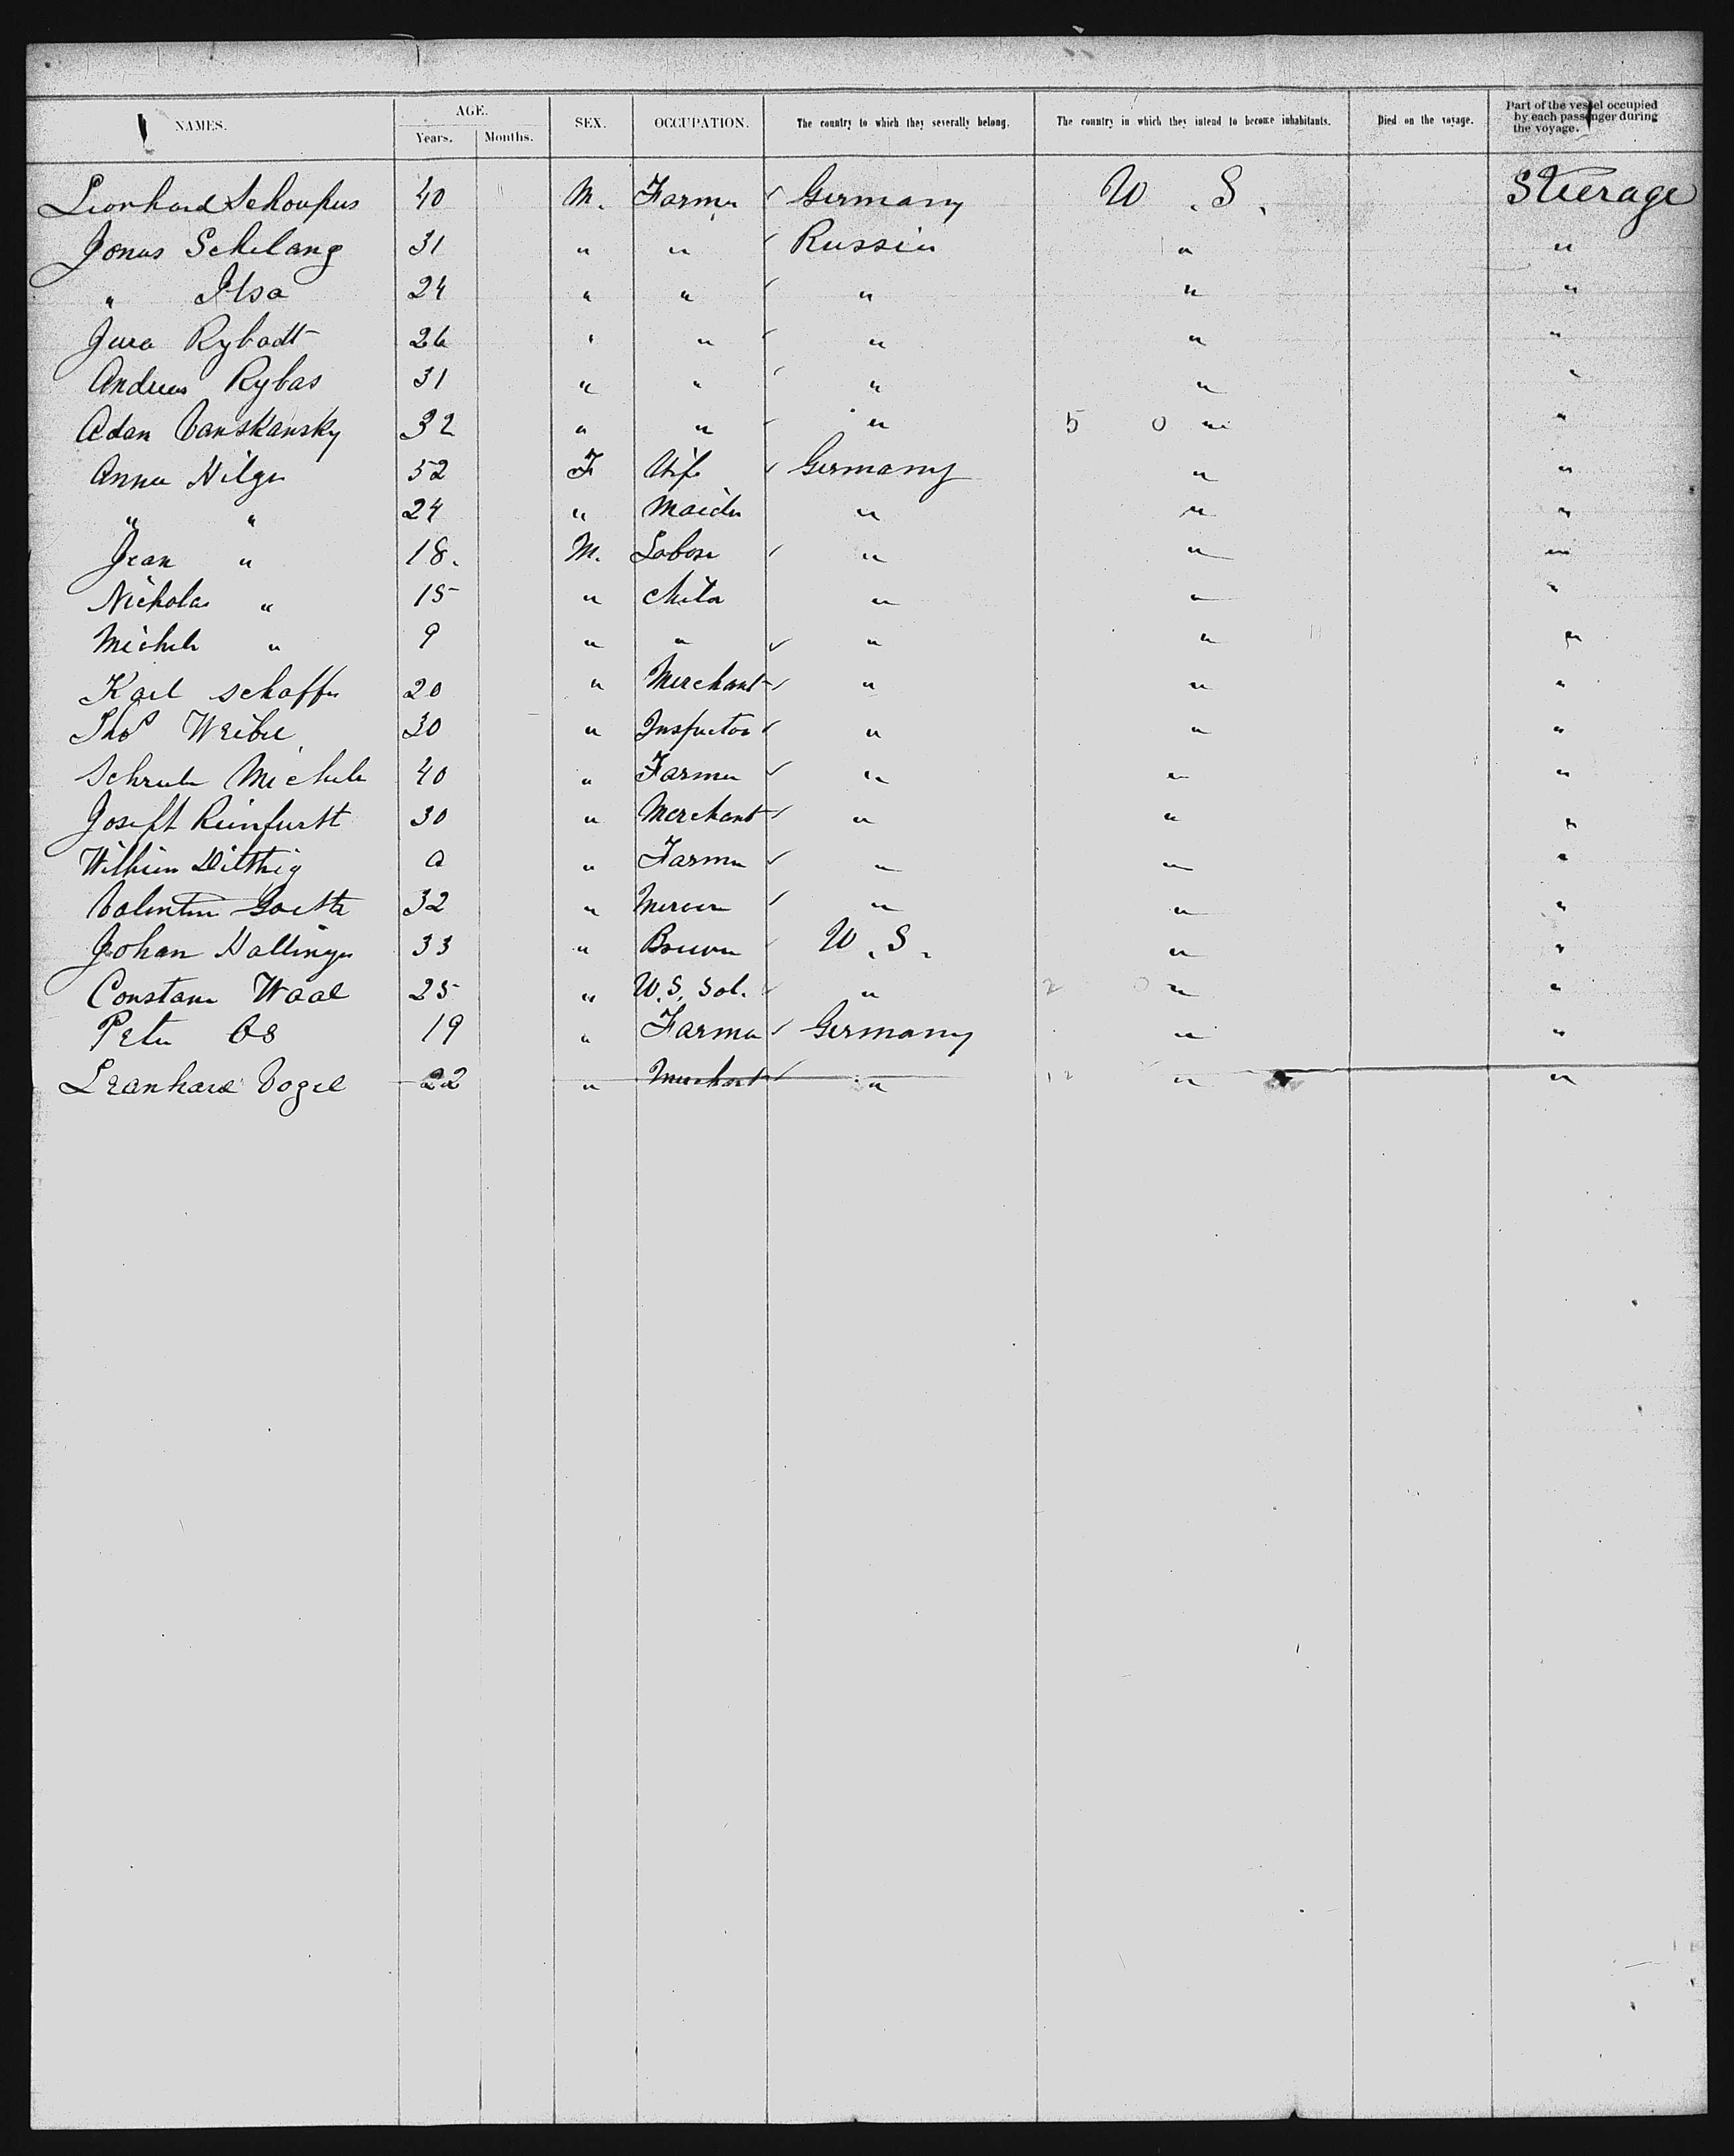 NAMES. AGE. Years. Months. SEX. OCCUPATION. The country to which they severally belong. The country in which they intend to become inhabitants. Died on the voyage. Part of the vessel occupied by each passenger during the voyage.
40 M. Farmer Germany U. S. Steerage
Jonas Schilang 31 " " Russia " "
" Ilsa 24 " " " " "
Jura Rybadt 26 " " " " "
Andreas Rybas 31 " " " " "
Adan Vanskansky 32 " " " 5 0 " "
Anna Hilger 52 F Wife Germany " "
" " 24 " Maiden " " "
Jean " 18. M. Labor " " "
Nicholas " 15 " Child " " "
Michele " 9 " " " " "
Karl Schaffer 20 " Merchant " " "
Thos Weibel 30 " Inspector " " "
Michele 40 " Farmer " " "
Joseph Reinfurst 30 " Merchant " " "
Wilhim Dilthig " Farmer " " "
Valentin Goetta 32 " " " "
Johan Hallinger 33 " Brewer U. S. " "
Constam Waal 25 " U. S. Sol. " 2 0 " "
Peter Os 19 " Farmer Germany " "
Leanhard Vogel 22 " Merchant " 12 " "